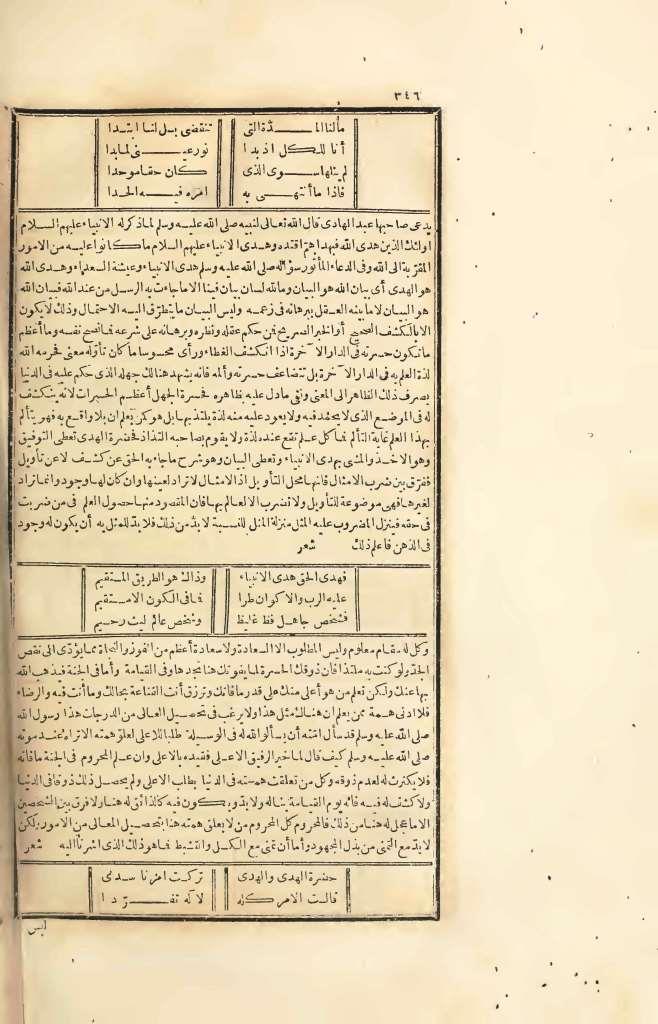 ٣٤٦
مالنا المدة التي تنقضي بل لنا ابتدا
أنا للكل اذ بدا نور عيني لما بدا
لم يتلها سوى الذي كان حقا موحدا
فاذا ما أنتهى به امره فيه الحدا
يدعى صاحبها عبد الهادى قال الله تعالى لنبيه صلى الله عليه وسلم لما ذكر له الانبياء عليهم السلام
اولئك الذين هدى الله فبهداهم اقتده وهدى الانبياء عليهم السلام ما كانوا عليه من الامور
المقربة الى الله وفى الدعاء المأثور سؤاله صلى الله عليه وسلم هدى الانبياء وعيشة السعداء وهدى الله
هو الهدى أى بيان الله هو البيان وما لله لسان بيان فينا الا ماجاءت به الرسل من عند الله فبيان الله
هو البيان لا ما يبينه العقل ببرهانه فى زعمه وليس البيان ما يتطرق اليه الاحتمال وذلك لا يكون
الا بالكشف الصحيح أو الخبر الصريح فمن حكم عقله ونظره وبرهانه على شرعه فما نصح نفسه وما أعظم
ما تكون حسرته فى الدار الآخرة اذا انكشف الغطاء ورأى محسوسا ما كان تأوله معنى فحرمه الله
لذة العلم به فى الدار الآخرة بل تتضاعف حسرته وألمه فانه يشهد هنالك جهله الذى حكم عليه فى الدنيا
بصرف ذلك الظاهر الى المعنى ونفى مادل عليه بظاهره فحسرة الجهل أعظم الحسرات لانه ينكشف
له فى الموضع الذى لا يحمد فيه ولا يعود عليه منه لذة يلتذ بها بل هو كمن يعلم ان بلا واقع به فهو يتألم
بهذا العلم غاية التألم فما كل علم تقع عنده لذة ولا يقوم بصاحبه التذاذ فحضرة الهدى تعطى التوفيق
وهو الاخذ والمشى بهدى الانبياء وتعطى البيان وهو شرح ماجاء به الحق عن كشف لا عن تأويل
ففرق بين ضرب الامثال فانها محل التأويل اذ الامثال لا تراد لعينها وان كان لها وجود وانما تراد
لغيرها فهى موضوعة للتأويل ولا تضرب الا لعالم بها فان المقصود منها حصول العلم فى من ضربت
فى حقه فينزل المضروب عليه المثل منزلة المثل للنسبة لا بد من ذلك فلا بد للمثل به أن يكون له وجود
فى الذهن فاعلم ذلك شعر
فهدى الحق هدى الانبياء وذاك هو الطريق المستقيم
عليه الرب والاكوان طرا فما فى الكون الا مستقيم
فشخص جاهل فظ غليظ وشخص عالم ليث رحيم
وكل له مقام معلوم وليس المطلوب الا السعادة ولا سعادة أعظم من الفوز والنجاة مما يؤدى الى نقص
الجد ولو كنت به ملتذا فان ذوقك الحسرة لما يفوتك هنا تجدها وفى القيامة وأما فى الجنة فيذهب الله
بها عنك ولكن تعلم من هو أعلى منك على قدر ما فاتك وترزق أنت القناعة بحالك وما أنت فيه والرضاء
فلا ادنى همة ممن يعلم ان هناك مثل هذا ولا يرغب فى تحصيل العالى من الدرجات هذا رسول الله
صلى الله عليه وسلم قد سأل امته أن يسألوا الله له فى الوسيلة طلبا للاعلى لعلو همته الا تراه عند موته
صلى الله عليه وسلم كيف قال لما خير الرفيق الاعلى فقيده بالاعلى وان علم المحروم فى الجنة ما فاته
فلا يكترث له لعدم ذوقه وكل من تعلقت همته فى الدنيا بطلب الاعلى ولم يحصل ذلك ذوقا فى الدنيا
ولا كشف له فيه فانه يوم القيامة يناله ولا بد ويكون فيه كالذائق له هنا ولا فرق بين الشخصين
الا ما عجل له هنا من ذلك فالمحروم كل المحروم من لا يعلق همته هنا بتحصيل المعالى من الامور ولكن
لا بد مع التمنى من بذل المجهود وأما أن تمنى مع الكسل والتثبيط فما هو ذلك الذى اشرنا اليه شعر
حضرة الهدى والهدى تركت امرنا سدى
قالت الامر كله لاله تفردا
ليس